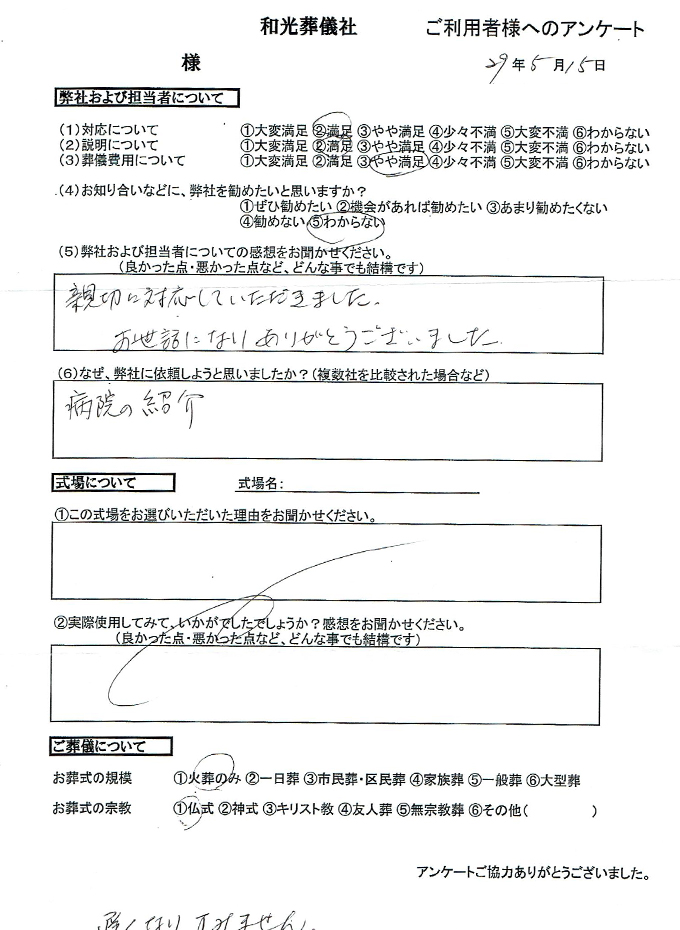 和光葬儀社 ご利用者様へのアンケート
様 29年5月15日
弊社および担当者について
(1)対応について ①大変満足 ②満足 ③やや満足 ④少々不満 ⑤大変不満 ⑥わからない
(2)説明について ①大変満足 ②満足 ③やや満足 ④少々不満 ⑤大変不満 ⑥わからない
(3)葬儀費用について ①大変満足 ②満足 ③やや満足 ④少々不満 ⑤大変不満 ⑥わからない
(4)お知り合いなどに、弊社を勧めたいと思いますか?
①ぜひ勧めたい ②機会があれば勧めたい ③あまり勧めたくない
④勧めない ⑤わからない
(5)弊社および担当者についての感想をお聞かせください。
(良かった点・悪かった点など、どんな事でも結構です)
親切に対応していただきました。
お世話になりありがとうございました
(6)なぜ、弊社に依頼しようと思いましたか?(複数社を比較された場合など)
病院の紹介
式場について 式場名:
①この式場をお選びいただいた理由をお聞かせください。
②実際使用してみて、いかがでしたでしょうか?感想をお聞かせください。
(良かった点・悪かった点など、どんな事でも結構です)
ご葬儀について
お葬式の規模 ①火葬のみ ②一日葬 ③市民葬・区民葬 ④家族葬 ⑤一般葬 ⑥大型葬
お葬式の宗教 ①仏式 ②神式 ③キリスト教 ④友人葬 ⑤無宗教葬 ⑥その他( )
アンケートご協力ありがとうございました。
遅くなりすみません。